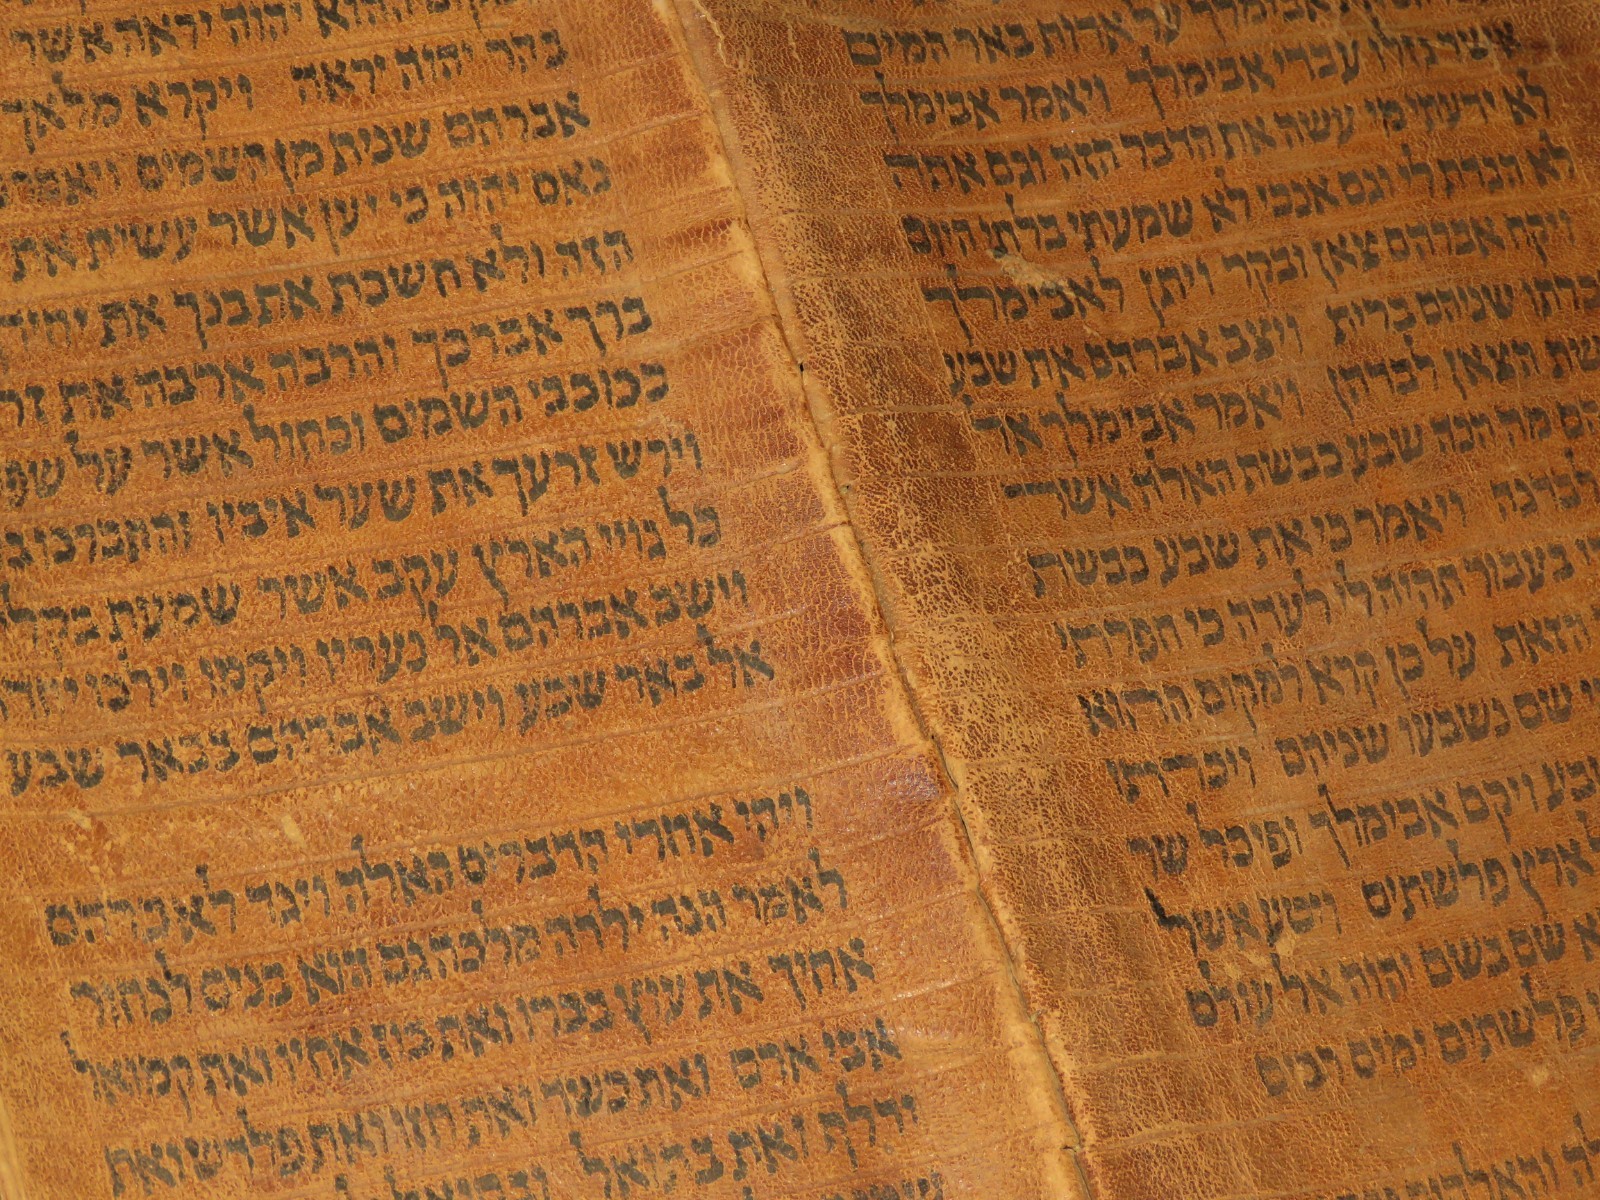 אבימלך על אדות באר המים
אשר גזלו עבדי אבימלך ויאמר אבימלך
לא ידעתי מי עשה את הדבר הזה וגם אתה
לא הגדת לי וגם אנכי לא שמעתי בלתי היום
ויקח אברהם צאן ובקר ויתן לאבימלך
שניהם ברית ויצב אברהם את שבע
הצאן לבדהן ויאמר אבימלך אל
מה הנה שבע כבשת האלה אשר
לבדנה ויאמר כי את שבע כבשת
בעבור תהיה לי לעדה כי חפרתי
הזאת על כן קרא למקום ההוא
שם נשבעו שניהם ויכרתו
ויקם אבימלך ופיכל שר
ארץ פלשתים ויטע אשל
שם בשם יהוה אל עולם
פלשתים ימים רבים
ההוא יהוה יראה אשר
בהר יהוה יראה ויקרא מלאך
אברהם שנית מן השמים ויאמר
נאם יהוה כי יען אשר עשית את
הזה ולא חשכת את בנך את
ברך אברכך והרבה ארבה את
ככוכבי השמים וכחול אשר על
וירש זרעך את שער איביו והתברכו
כל גויי הארץ עקב אשר שמעת
וישב אברהם אל נעריו ויקמו וילכו
אל באר שבע וישב אברהם בבאר שבע
ויהי אחרי הדברים האלה ויגד לאברהם
לאמר הנה ילדה מלכה גם הוא בנים לנחור
אחיך את עוץ בכרו ואת בוז אחיו ואת קמואל
אבי ארם ואת כשד ואת חזו ואת פלדש ואת
ידלף ואת בתואל